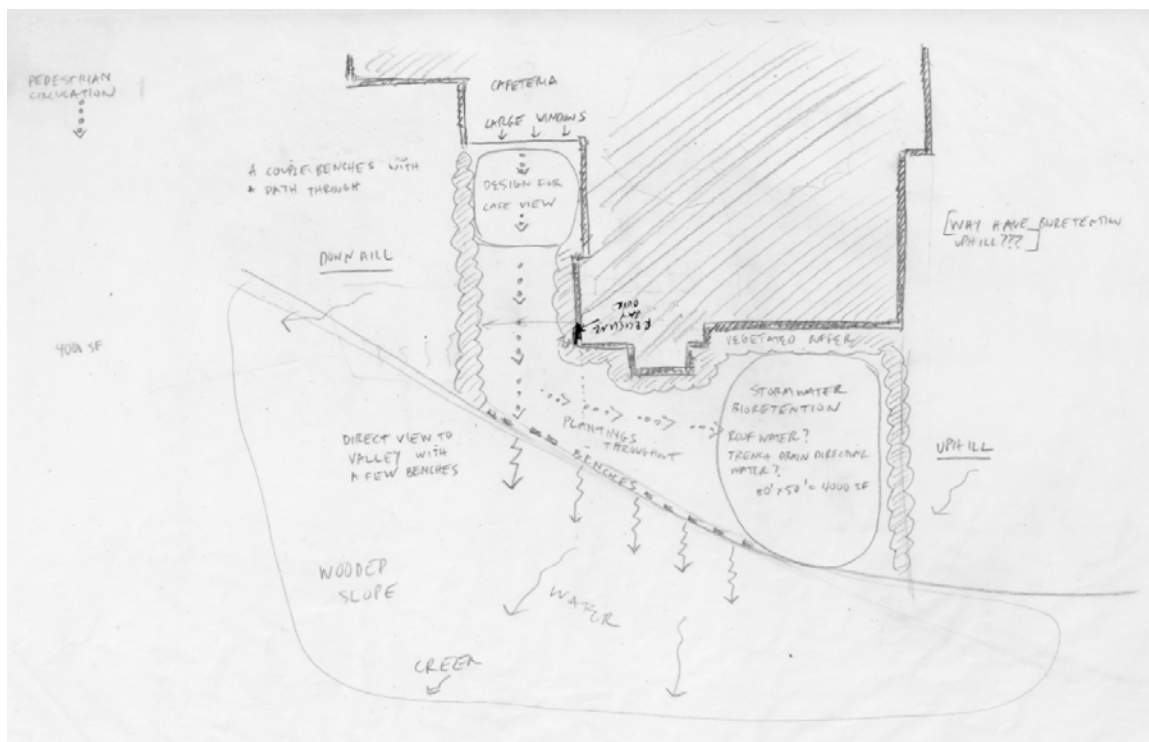 PEDESTRIAN
CIRCULATION
CAFETERIA
LARGE WINDOWS
A COUPLE BENCHES WITH
A PATH THROUGH
DESIGN FOR
CAFE VIEW
[WHY HAVE BIORETENTION
UPHILL???]
DOWNHILL
4000 SF
VEGETATED BUFFER
STORMWATER
BIORETENTION
ROOF WATER?
TRENCH DRAIN DIRECTIONAL
WATER?
80' x 50' = 4000 SF
PLANTINGS
THROUGHOUT
BENCHES
DIRECT VIEW TO
VALLEY WITH
A FEW BENCHES
UPHILL
WOODED
SLOPE
WATER
CREEK